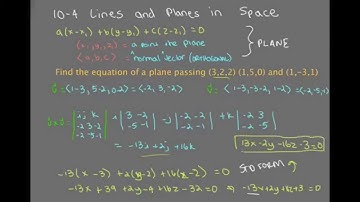 10-4 Lines and Planes in Space
a(x-x₁) + b(y-y₁) + c(z-z₁) = 0
(x₁, y₁, z₁) = a point in the plane
⟨a, b, c⟩ = "normal" vector (orthogonal)
} PLANE
Find the equation of a plane passing (3,2,2) (1,5,0) and (1,-3,1)
= ⟨1-3, 5-2, 0-2⟩ = ⟨-2, 3, -2⟩
= ⟨1-3, -3-2, 1-2⟩ = ⟨-2, -5, -1⟩
i j k
-2 3 -2
-2 -5 -1
= i |3 -2| - j |-2 -2| + k |-2 3|
|-5 -1| |-2 -1| |-2 -5|
= -13i + 2j + 16k
13x - 2y - 16z - 3 = 0
-13(x-3) + 2(y-2) + 16(z-2) = 0
STD FORM
-13x + 39 + 2y - 4 + 16z - 32 = 0 ⇒ -13x + 2y + 16z + 3 = 0